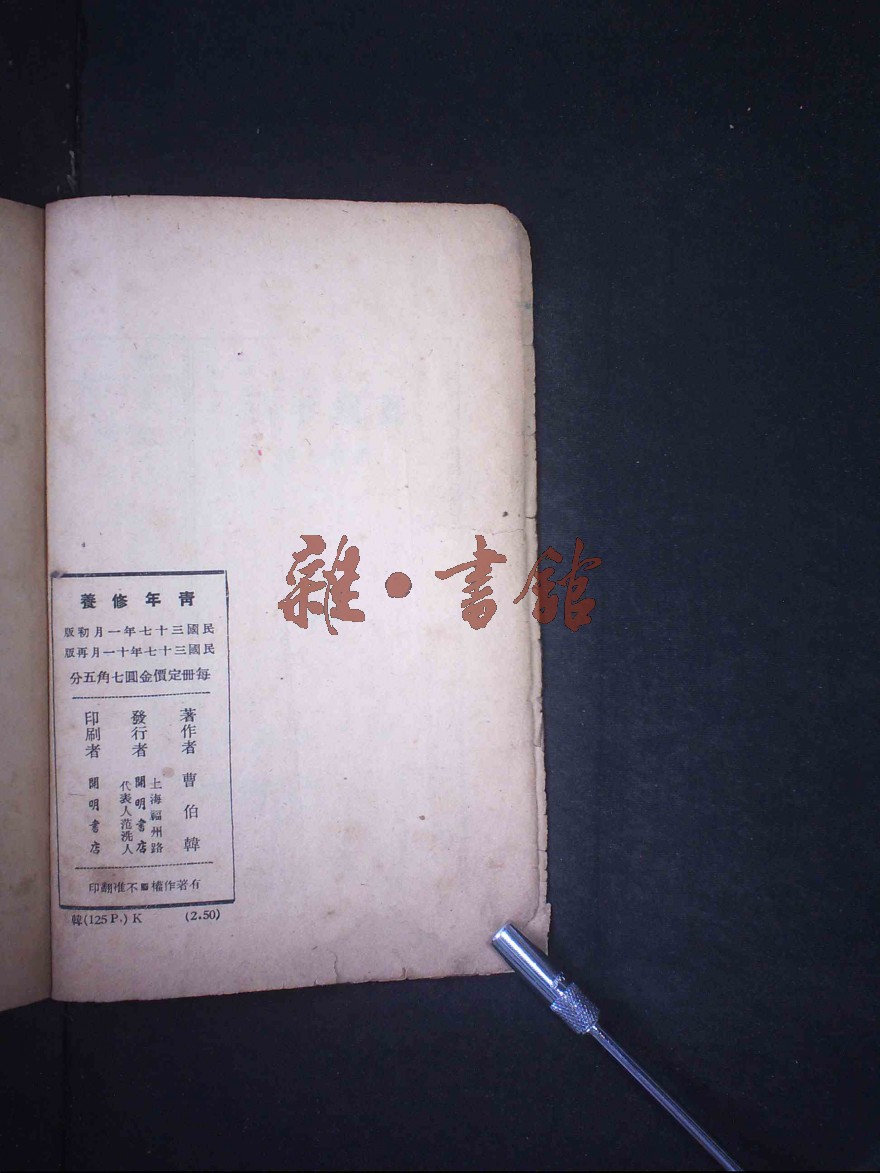 青年修養
民國三十七年一月初版
民國三十七年十一月再版
每册定價金圓七角五分
著作者 曹伯韓
發行者 上海福州路
開明書店
代表人范洗人
印刷者 開明書店
有著作權■不准翻印
韓(125 P.) K (2.50)
雜·書館